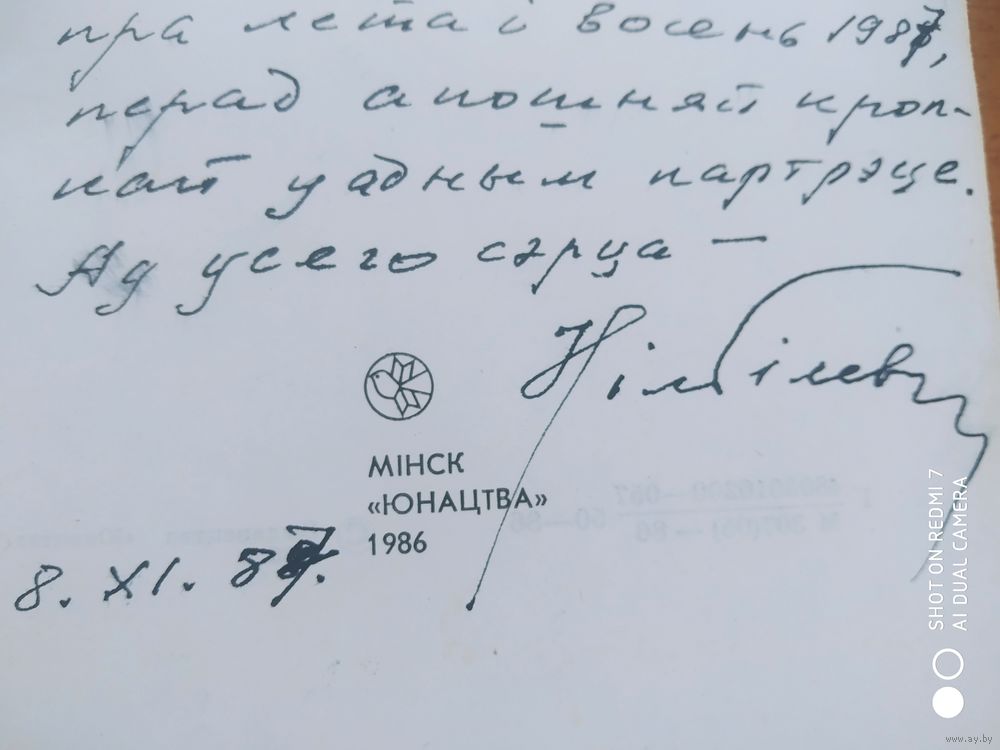 пра лета і восень 1987,
перад апошняй кроп-
кай у адным партрэце.
Ад усего сэрца —
Ніл Гілевіч
МІНСК
«ЮНАЦТВА»
1986
8. XI. 87.
SHOT ON REDMI 7
AI DUAL CAMERA
www.ay.by